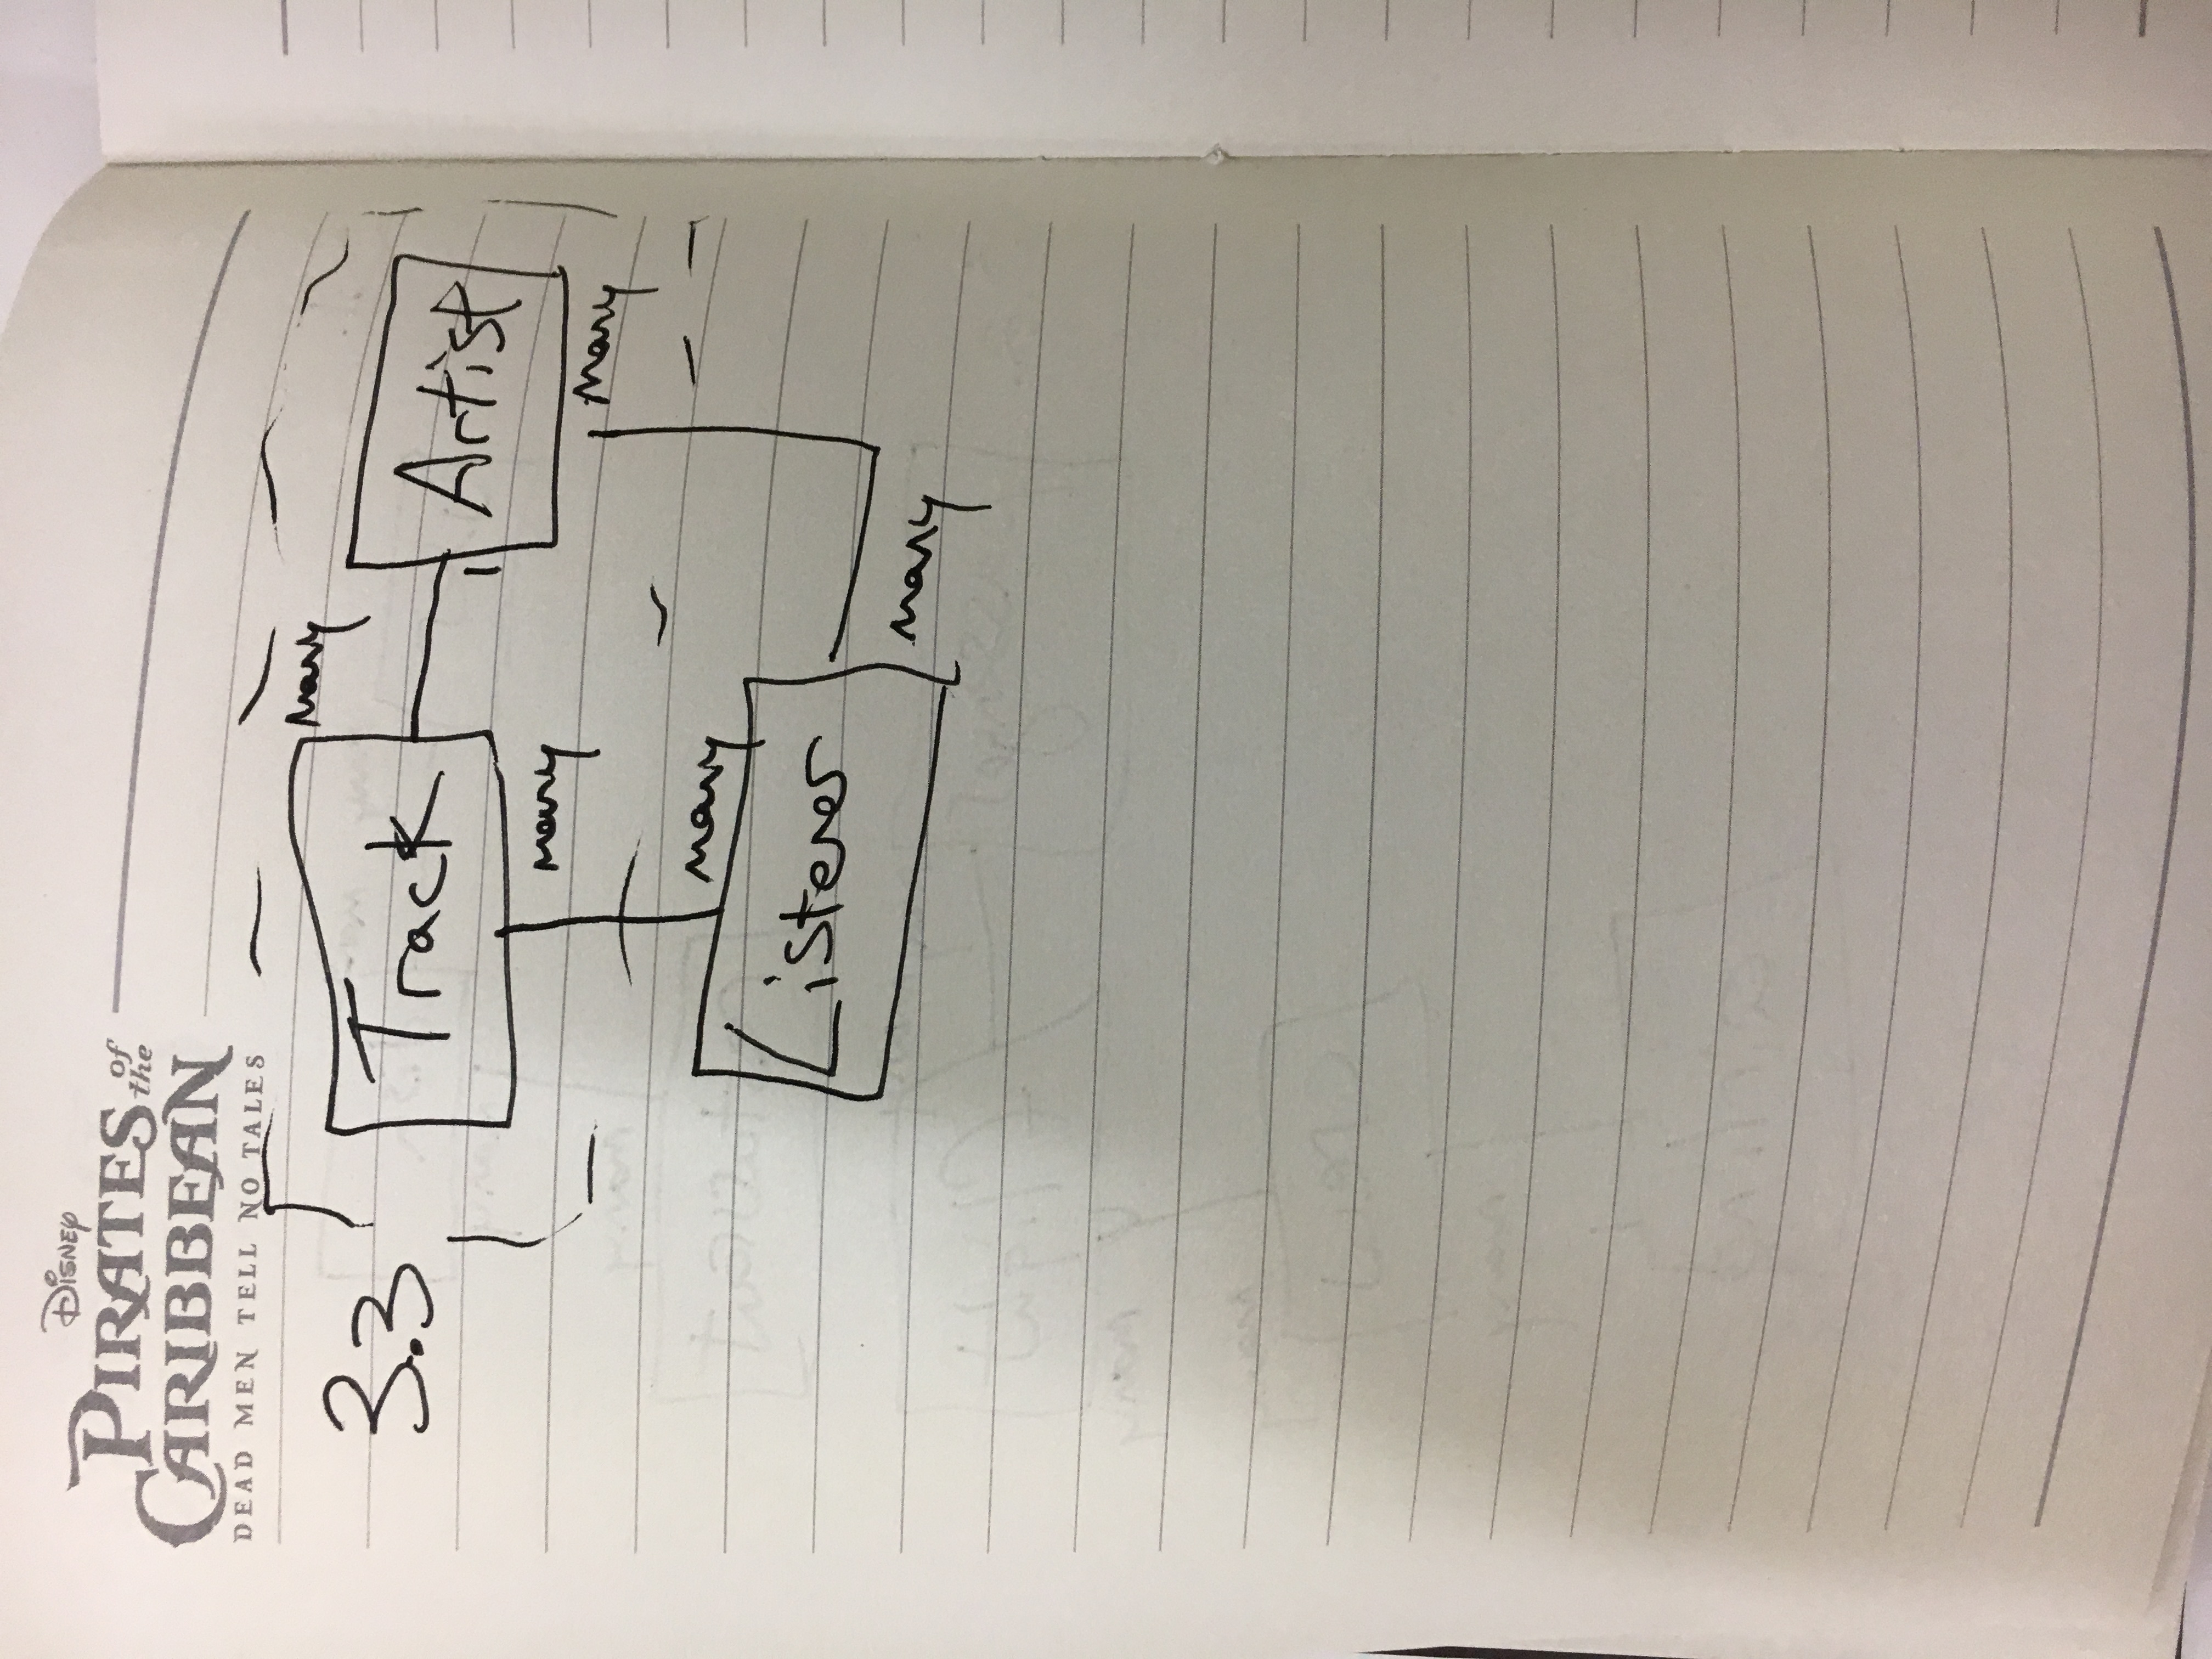 Disney
PIRATES of the
CARIBBEAN
DEAD MEN TELL NO TALES
3.3
Track
many
1
Artist
many
many
many
Listener
many